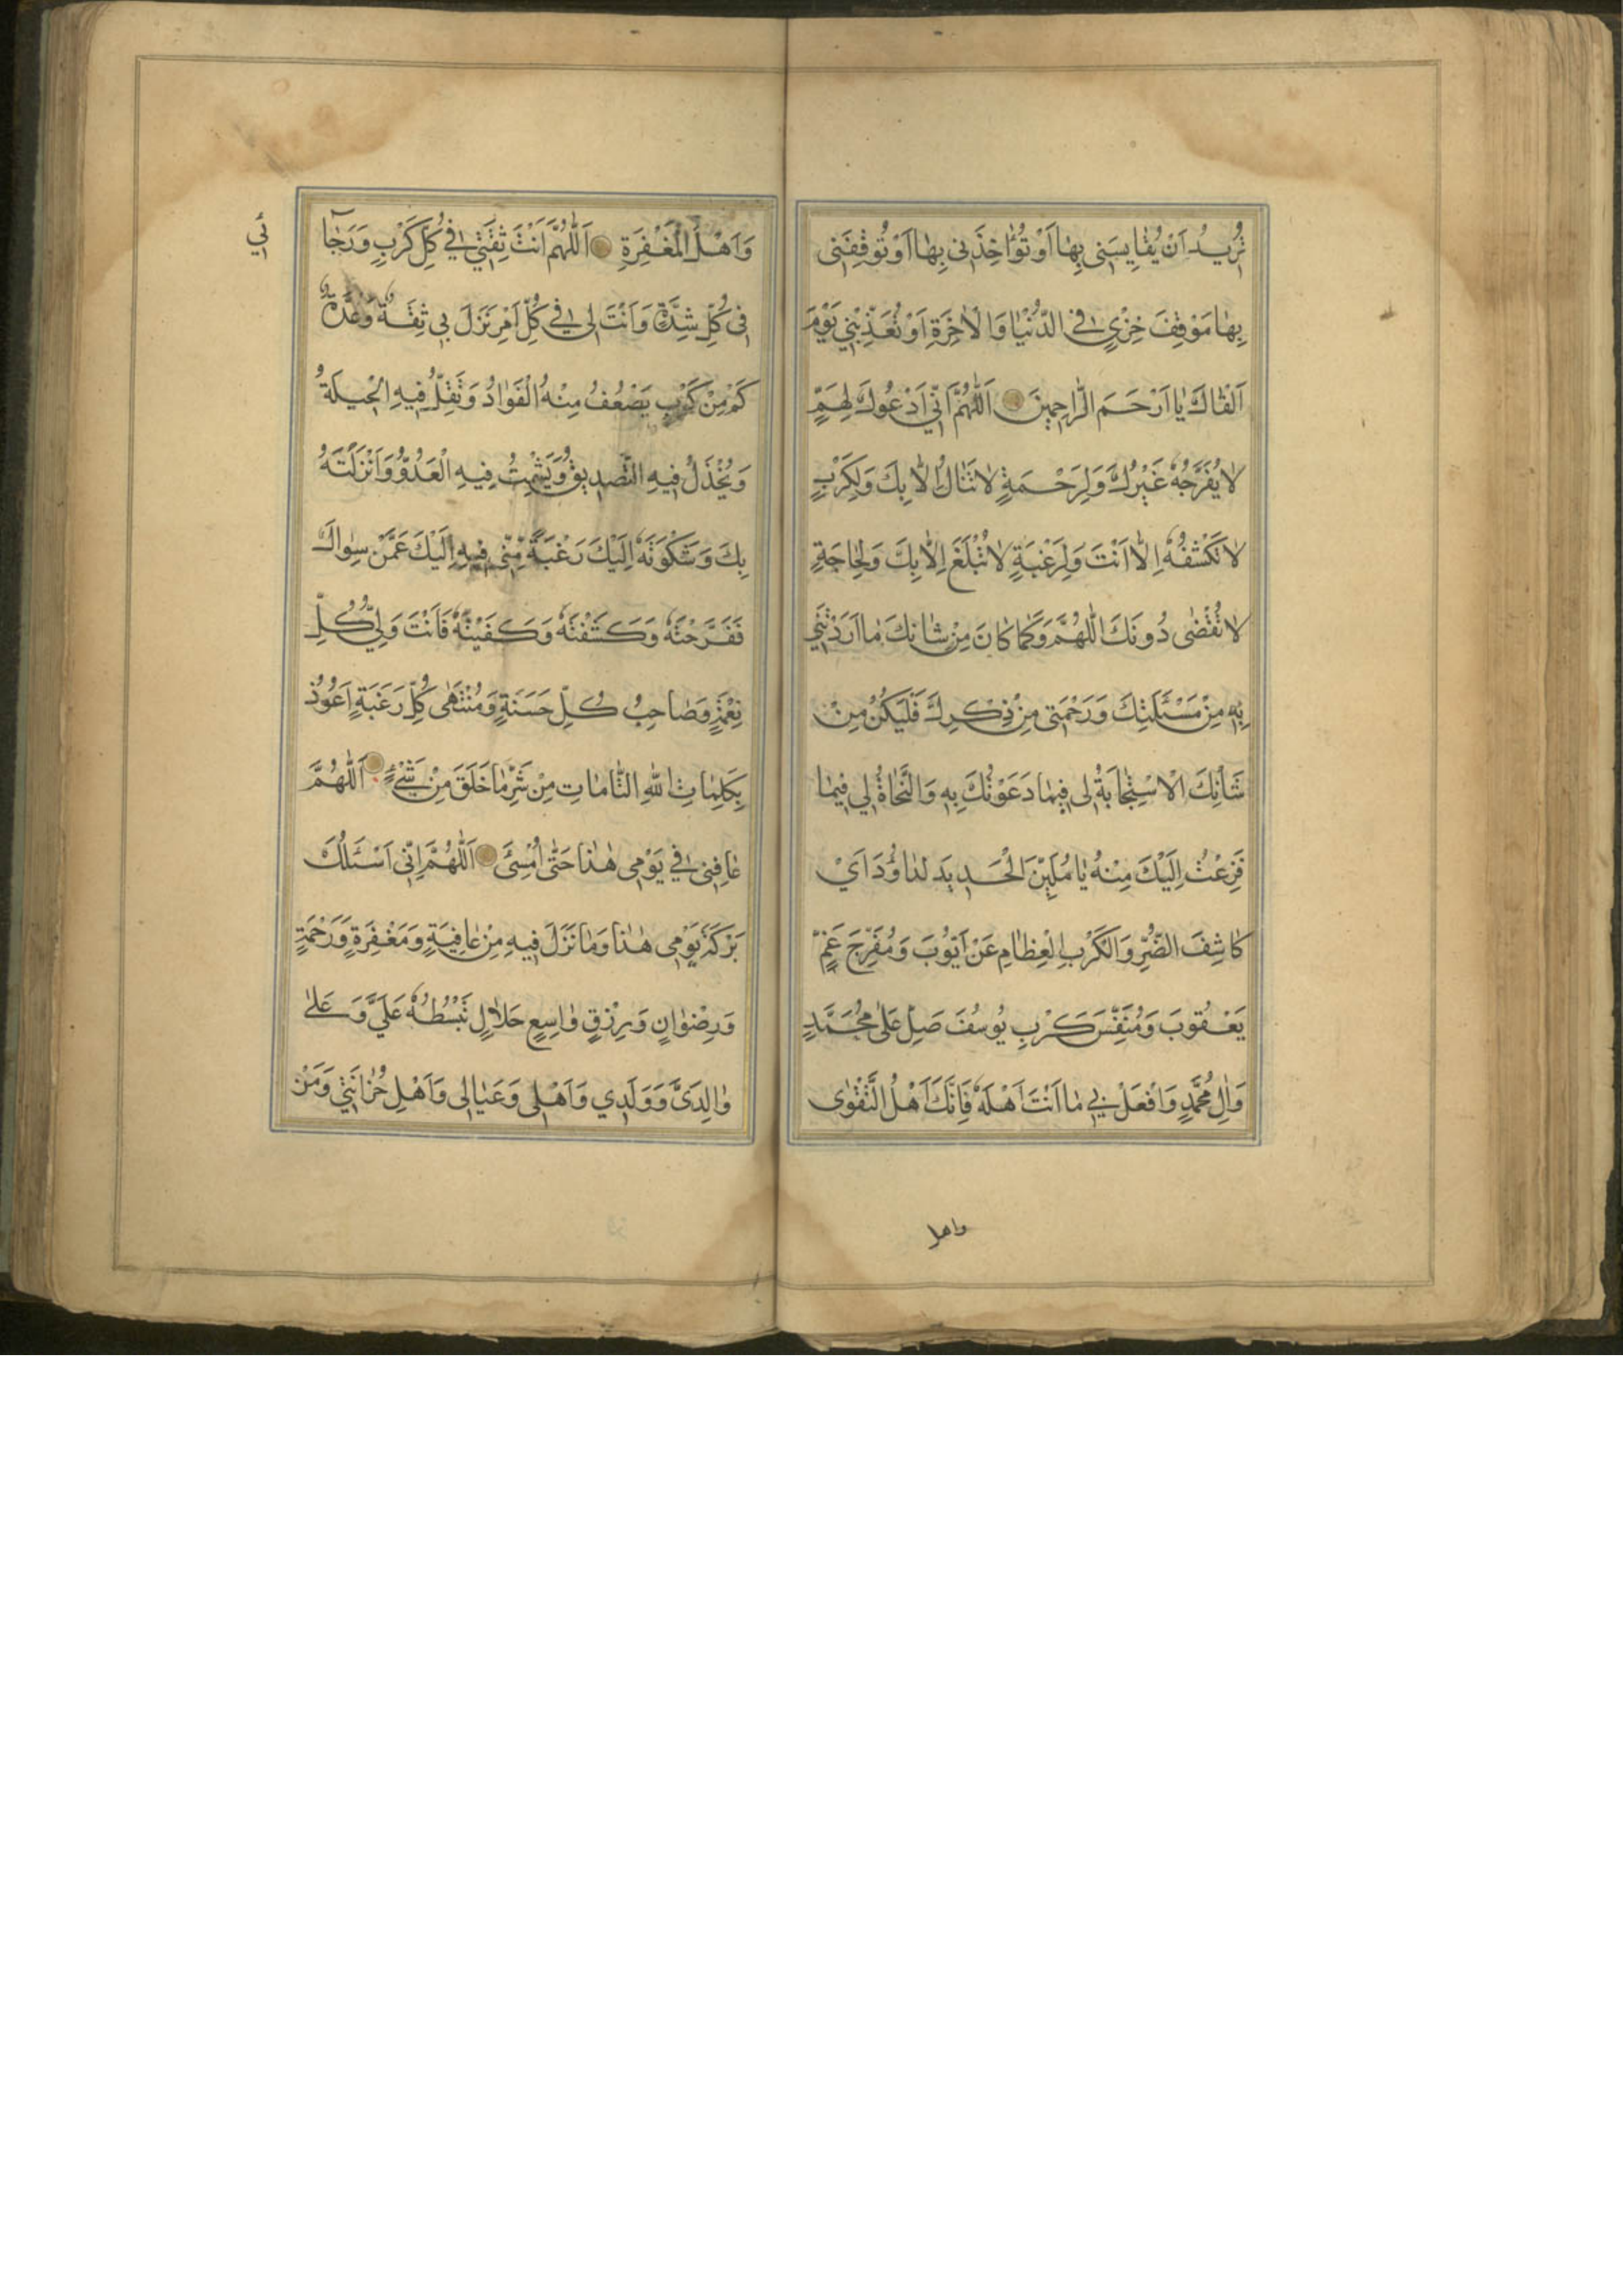 تُرِيدُ اَنْ يُقٰايِسَنى بِهٰا اَوْ تُؤٰاخِذَنى بِهٰا اَوْ تُوقِفَنى
بِهٰا مَوْقِفَ خِزْيٍ فِى الدُّنْيٰا وَالْاٰخِرَةِ اَوْ تُعَذِّبَنِي يَوْمَ
اَلْقٰاكَ يٰا اَرْحَمَ الرّٰاحِمِينَ اَللّٰهُمَّ اِنّي اَدْعُوكَ لِهَمٍّ
لاٰ يُفَرَّجُهُ غَيْرُكَ وَلِرَحْمَةٍ لاٰ تَنٰالُ اِلاّٰ بِكَ وَلِكَرْبٍ
لاٰ تَكْشِفُهُ اِلاّٰ اَنْتَ وَلِرَغْبَةٍ لاٰ تُبْلَغُ اِلاّٰ بِكَ وَلِحٰاجَةٍ
لاٰ تُقْضٰى دُونَكَ اللّٰهُمَّ وَكَمٰا كٰانَ مِنْ شٰانِكَ مٰا اَرَدْتَنِي
بِهِ مِنْ مَسْئَلَتِكَ وَرَحْمَتى مِنْ ذِكْرِكَ فَلْيَكُنْ مِنْ
شَأْنِكَ الْاِسْتِجٰابَةُ لى فِيمٰا دَعَوْتُكَ بِهِ وَالنَّجٰاةُ لِي فِيمٰا
فَزِعْتُ اِلَيْكَ مِنْهُ يٰا مُلَيِّنَ الْحَدِيدِ لِدٰاوُدَ اَيْ
كٰاشِفَ الضُّرِّ وَالْكَرْبِ الْعِظٰامِ عَنْ اَيُّوبَ وَمُفَرِّجَ غَمِّ
يَعْقُوبَ وَمُنَفِّسَ كَرْبِ يُوسُفَ صَلِّ عَلٰى مُحَمَّدٍ
وَاٰلِ مُحَمَّدٍ وَافْعَلْ بِي مٰا اَنْتَ اَهْلَهُ فَاِنَّكَ اَهْلُ التَّقْوٰى
واهل
وَاَهْلُ الْمَغْفِرَةِ اَللّٰهُمَّ اَنْتَ ثِقَتِي فِي كُلِّ كَرْبٍ وَرَجٰا
ئي
فِى كُلِّ شِدَّةٍ وَاَنْتَ لى فِي كُلِّ اَمْرٍ نَزَلَ بى ثِقَةٌ وَعُدَّةٌ
كَمْ مِنْ كَرْبٍ يَضْعُفُ مِنْهُ الْفُوَادُ وَتَقِلُّ فِيهِ الْحِيلَةُ
وَيُخْذَلُ فِيهِ الصَّدِيقُ وَيَشْمِتُ فِيهِ الْعَدُوُّ وَاَنْزَلْتَهُ
بِكَ وَشَكْوَتَهُ اِلَيْكَ رَغْبَةً مِنّى فِيهِ اِلَيْكَ عَمَّنْ سِوٰاكَ
فَفَرَّجْتَهُ وَكَشَفْتَهُ وَكَفَيْتَهُ فَاَنْتَ وَلِيُّ كُلِّ
نِعْمَةٍ وَصٰاحِبُ كُلِّ حَسَنَةٍ وَمُنْتَهٰى كُلِّ رَغَبَةٍ اَعُوذُ
بِكَلِمٰاتِ اللّٰهِ التّٰامٰاتِ مِنْ شَرِّ مٰا خَلَقَ مِنْ شَيْءٍ اَللّٰهُمَّ
عٰافِنى فِي يَوْمِى هٰذٰا حَتّٰى اُمْسِىَ اَللّٰهُمَّ اِنّى اَسْئَلُكَ
بَرَكَةَ يَوْمِى هٰذٰا وَمٰا نَزَلَ فِيهِ مِنْ عٰافِيَةٍ وَمَغْفِرَةٍ وَرَحْمَةٍ
وَرِضْوٰانٍ وَرِزْقٍ وٰاسِعٍ حَلاٰلٍ تَبْسُطُهُ عَلَيَّ وَعَلٰى
وٰالِدَيَّ وَوَلَدِي وَاَهْلى وَعَيٰالى وَاَهْلِ حُزٰانَتِي وَمَنْ